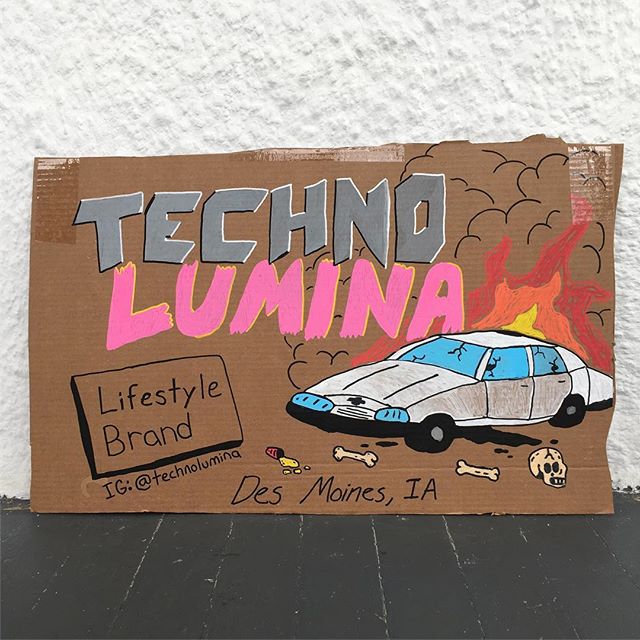 TECHNO
LUMINA
Lifestyle
Brand
IG: @technolumina
Des Moines, IA